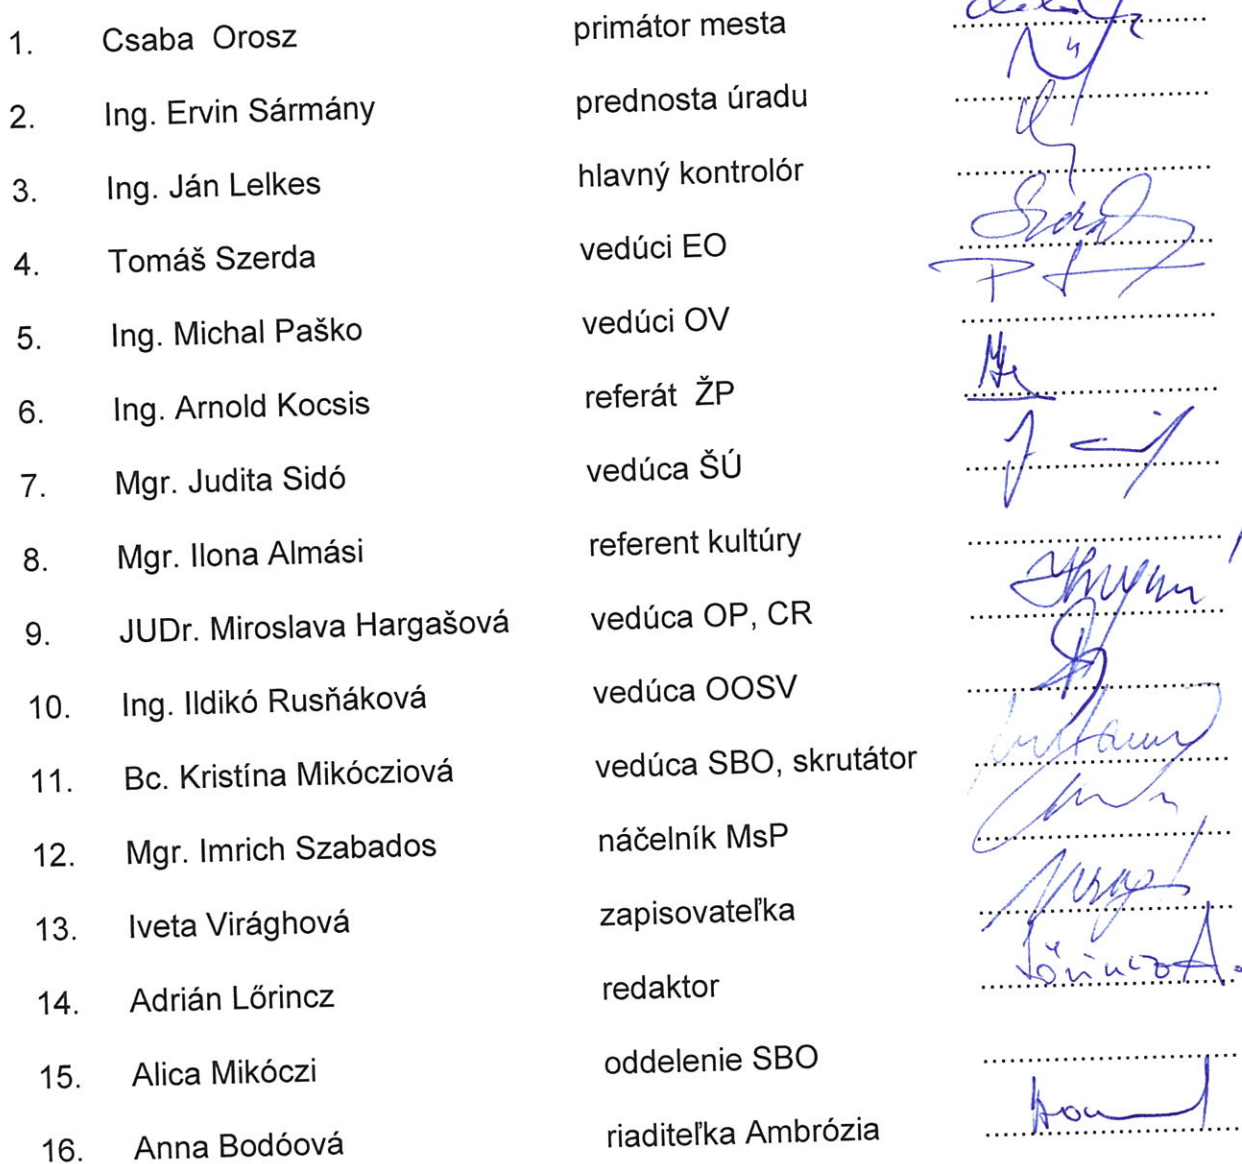 1. Csaba Orosz primátor mesta
2. Ing. Ervin Sármány prednosta úradu
3. Ing. Ján Lelkes hlavný kontrolór
4. Tomáš Szerda vedúci EO
5. Ing. Michal Paško vedúci OV
6. Ing. Arnold Kocsis referát ŽP
7. Mgr. Judita Sidó vedúca ŠÚ
8. Mgr. Ilona Almási referent kultúry
9. JUDr. Miroslava Hargašová vedúca OP, CR
10. Ing. Ildikó Rusňáková vedúca OOSV
11. Bc. Kristína Mikócziová vedúca SBO, skrutátor
12. Mgr. Imrich Szabados náčelník MsP
13. Iveta Virághová zapisovateľka
14. Adrián Lőrincz redaktor Lőrincz A.
15. Alica Mikóczi oddelenie SBO
16. Anna Bodóová riaditeľka Ambrózia